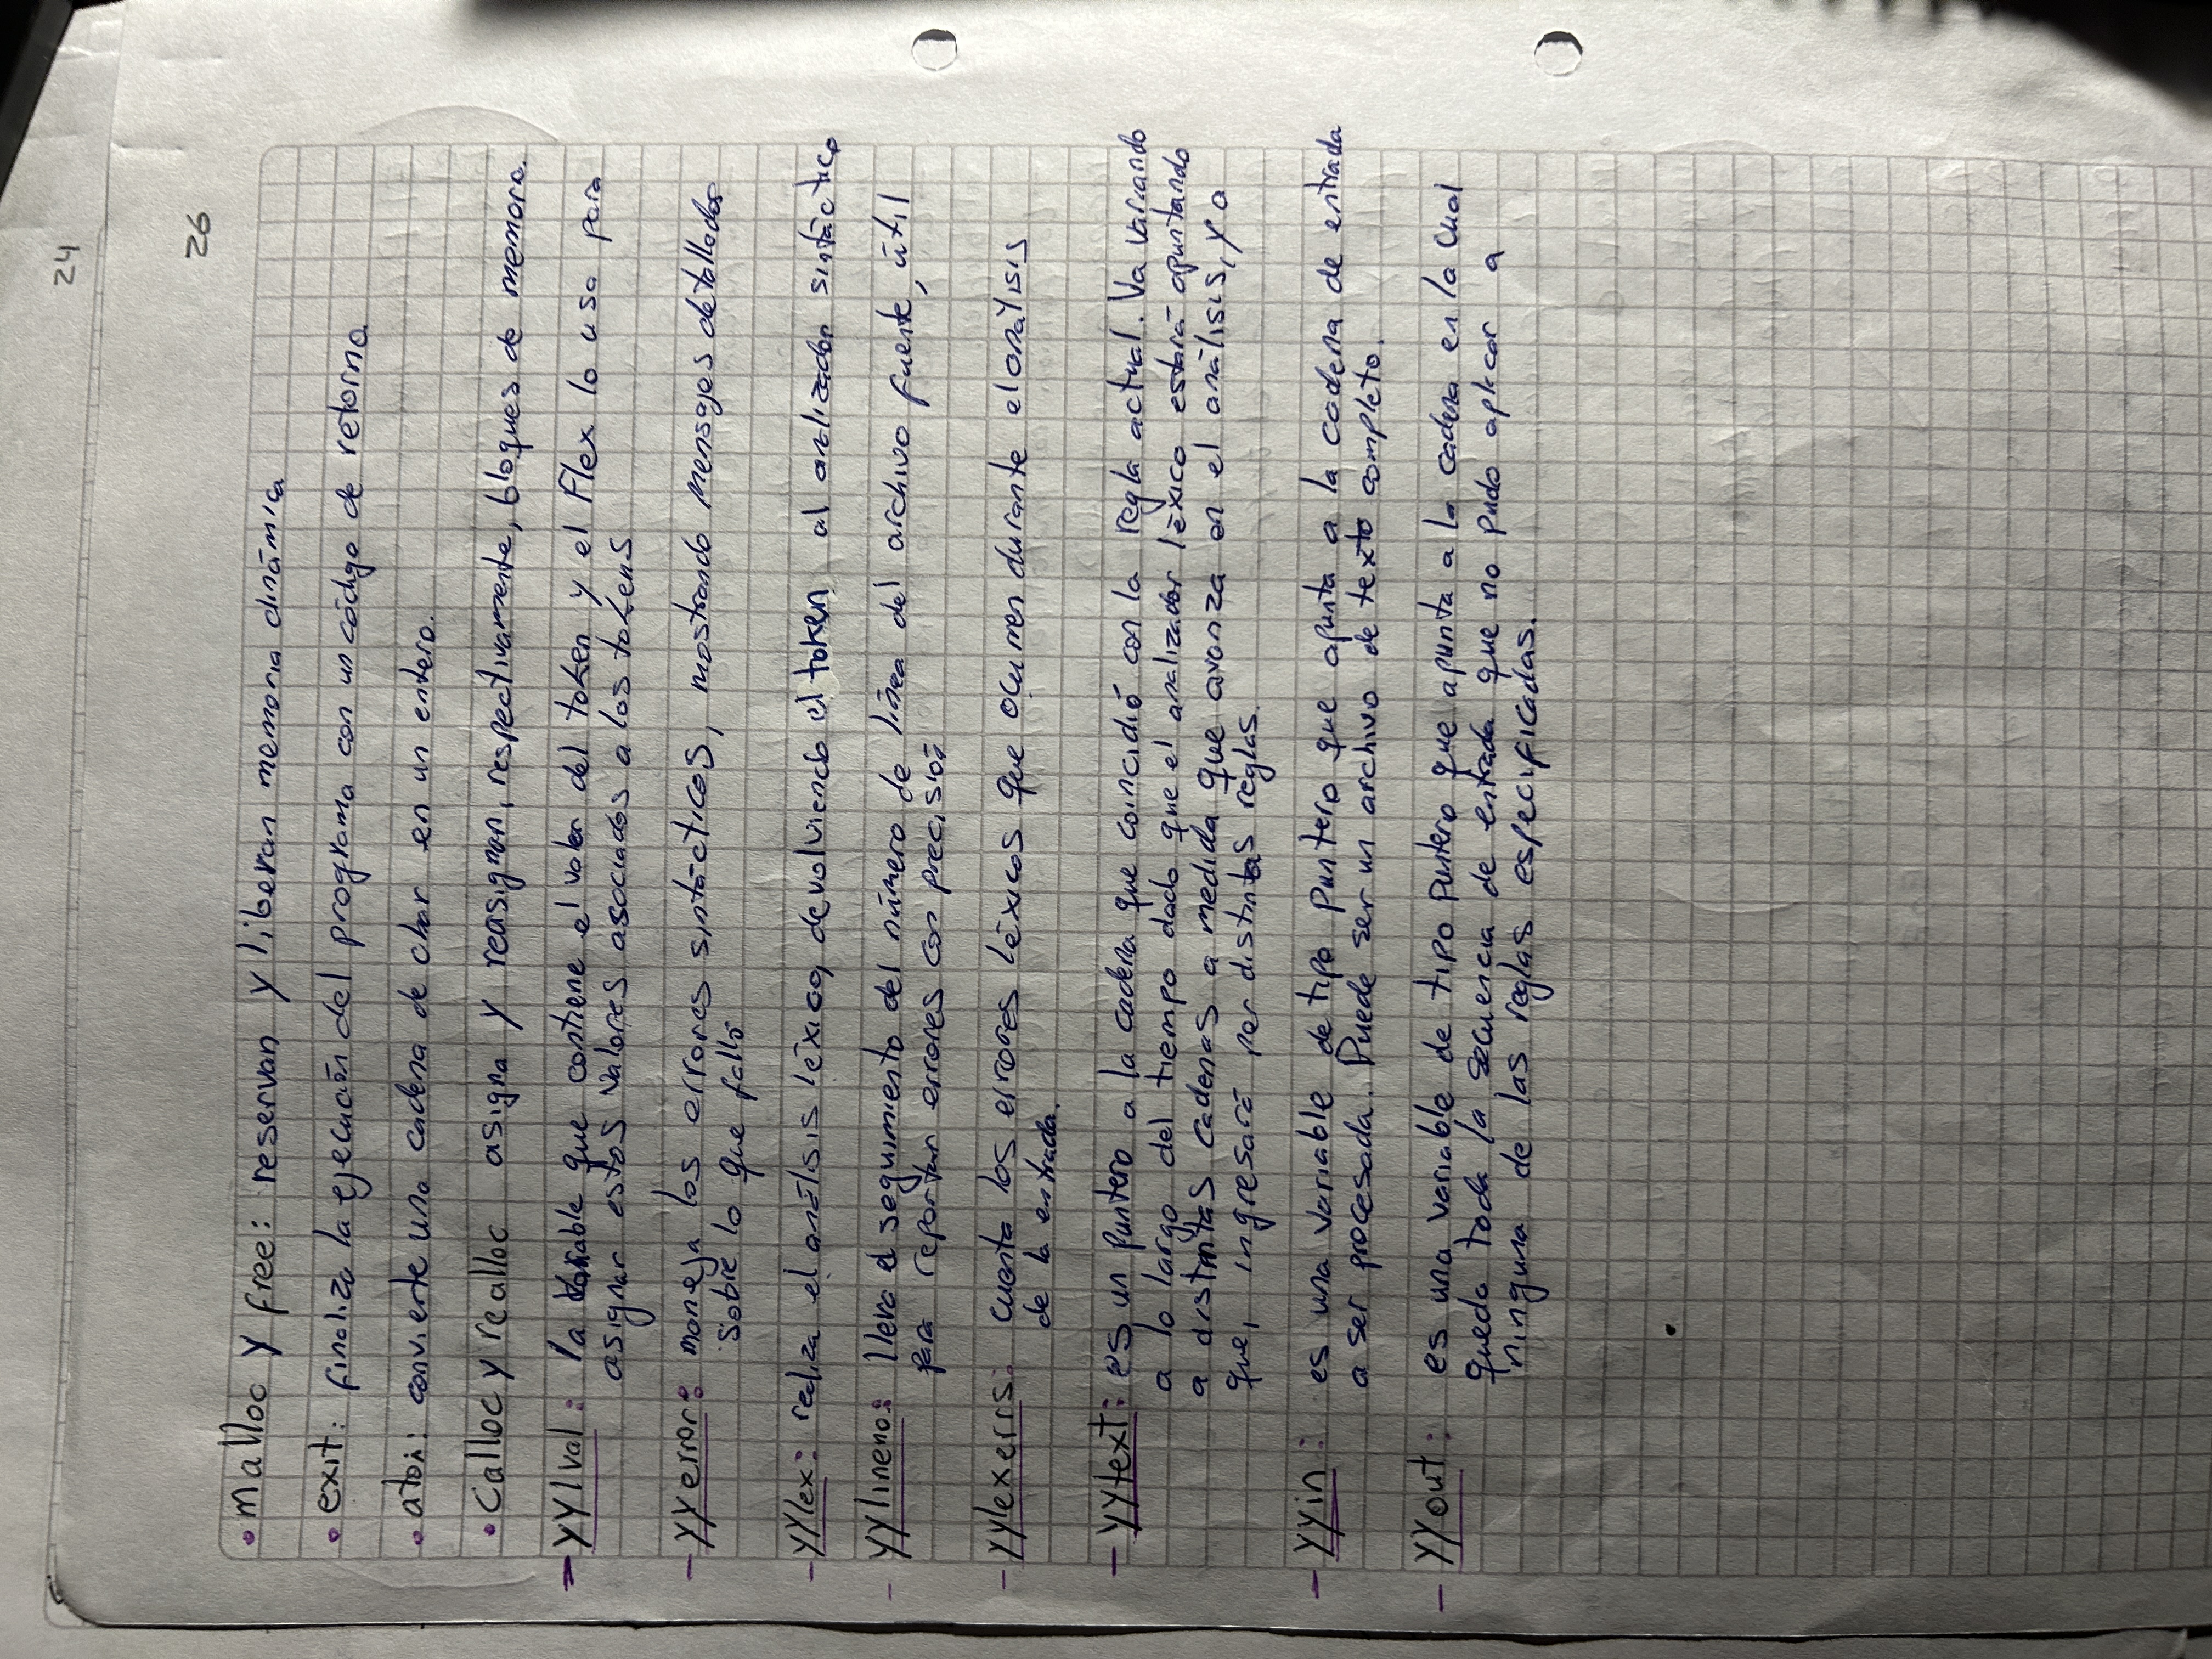 24
26
• malloc y free: reservan y liberan memoria dinámica
• exit: finaliza la ejecución del programa con un código de retorno.
• atoi: convierte una cadena de char en un entero.
• Calloc y realloc asigna y reasignan, respectivamente, bloques de memoria.
- yylval: la variable que contiene el valor del token y el Flex lo usa para
asignar estos valores asociados a los tokens
- yyerror: maneja los errores sintácticos, mostrando mensajes detallados
sobre lo que falló
- yylex: realiza el análisis léxico, devolviendo el token al analizador sintáctico
- yylineno: lleva el seguimiento del número de línea del archivo fuente, útil
para reportar errores con precisión
- yylexerrs: cuenta los errores léxicos que ocurren durante el análisis
de la entrada.
- yytext: es un puntero a la cadena que coincidió con la regla actual. Va variando
a lo largo del tiempo dado que el analizador léxico estará apuntando
a distintas cadenas a medida que avanza en el análisis, ya
que, ingresará por distintas reglas.
- yyin: es una variable de tipo puntero que apunta a la cadena de entrada
a ser procesada. Puede ser un archivo de texto completo.
- yyout: es una variable de tipo puntero que apunta a la cadena en la cual
queda toda la secuencia de entrada que no pudo aplicar a
ninguna de las reglas especificadas.